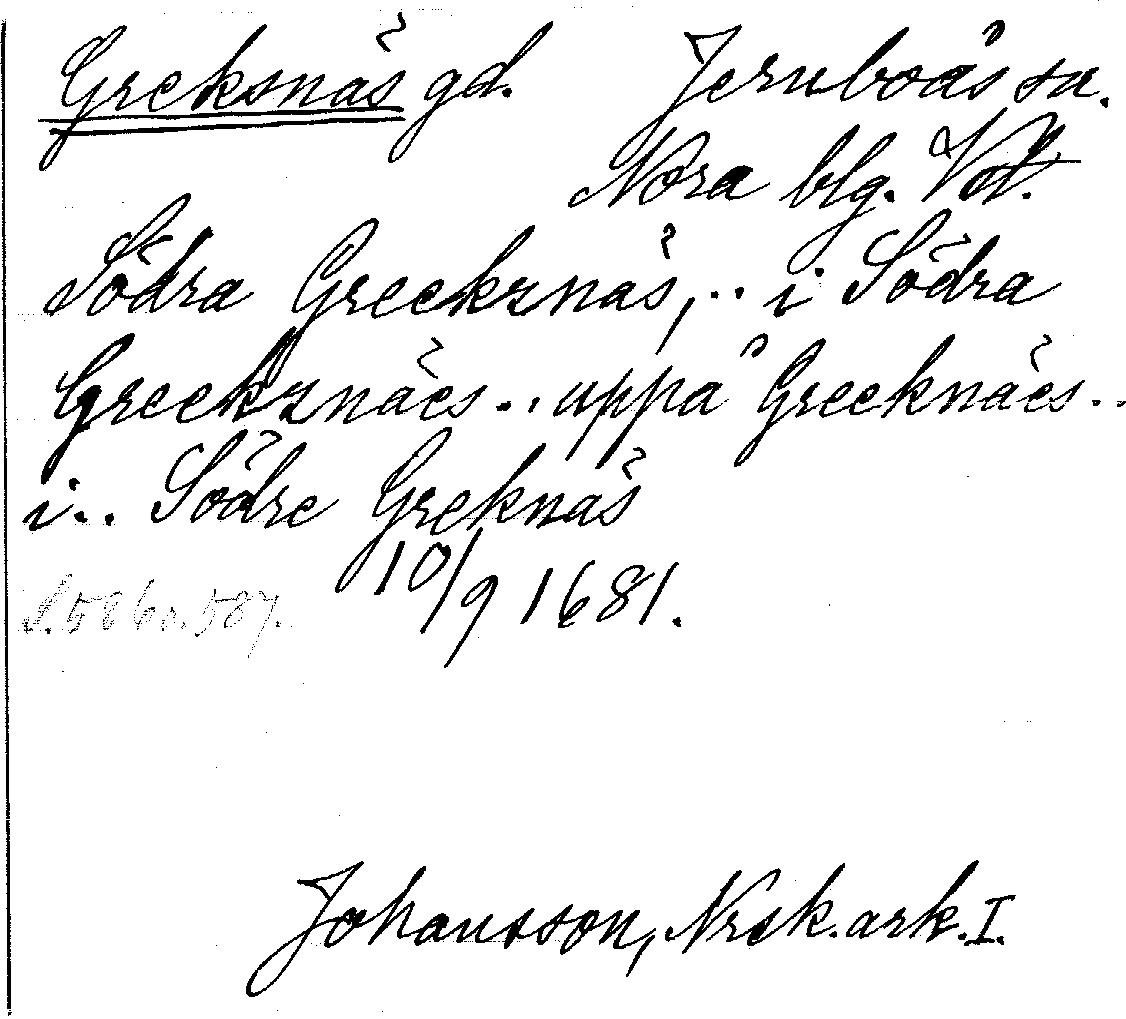 Greksnäs gd. Jernboås sn.
Nora blg. Vstl.
Södra Greekznäs, .. i Södra
Greekznäes .. uppå Greeknäes ..
i .. Södre Greknäs
10/9 1681.
S. 586 o. 587.
Johansson, Nrsk. ark. I.